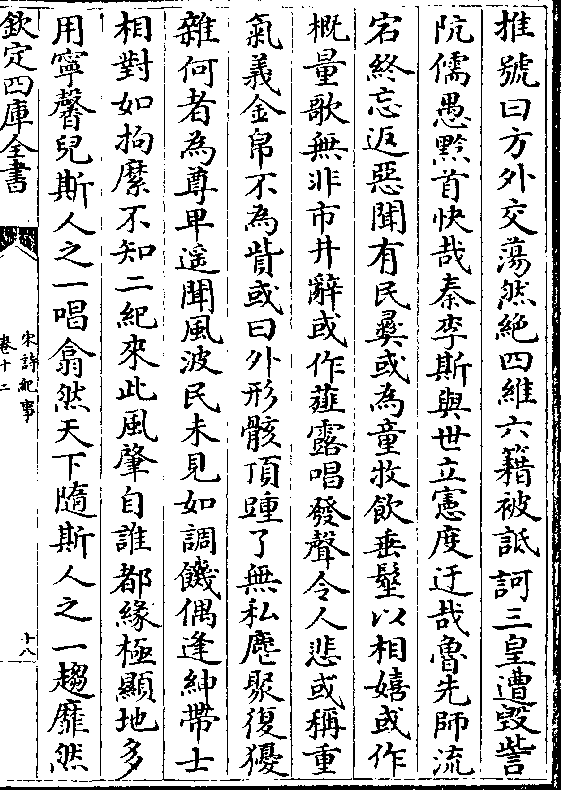 推號曰方外交蕩然絶四維六籍被詆訶三皇遭毀訾
阬儒愚黔首快哉秦李斯與世立憲度迂哉魯先師流
宕終忘返惡聞有民彝或為童牧飲垂髫以相嬉或作
概量歌無非市井辭或作薤露唱發聲令人悲或稱重
氣義金帛不為貲或曰外形骸頂踵了無私麀聚復獶
雜何者為尊卑遥聞風波民未見如調饑偶逢紳帶士
相對如拘縻不知二紀來此風肇自誰都縁極顯地多
用寧馨兒斯人之一唱翕然天下隨斯人之一趨靡然
欽定四庫全書
宋詩紀事
卷十二
十八